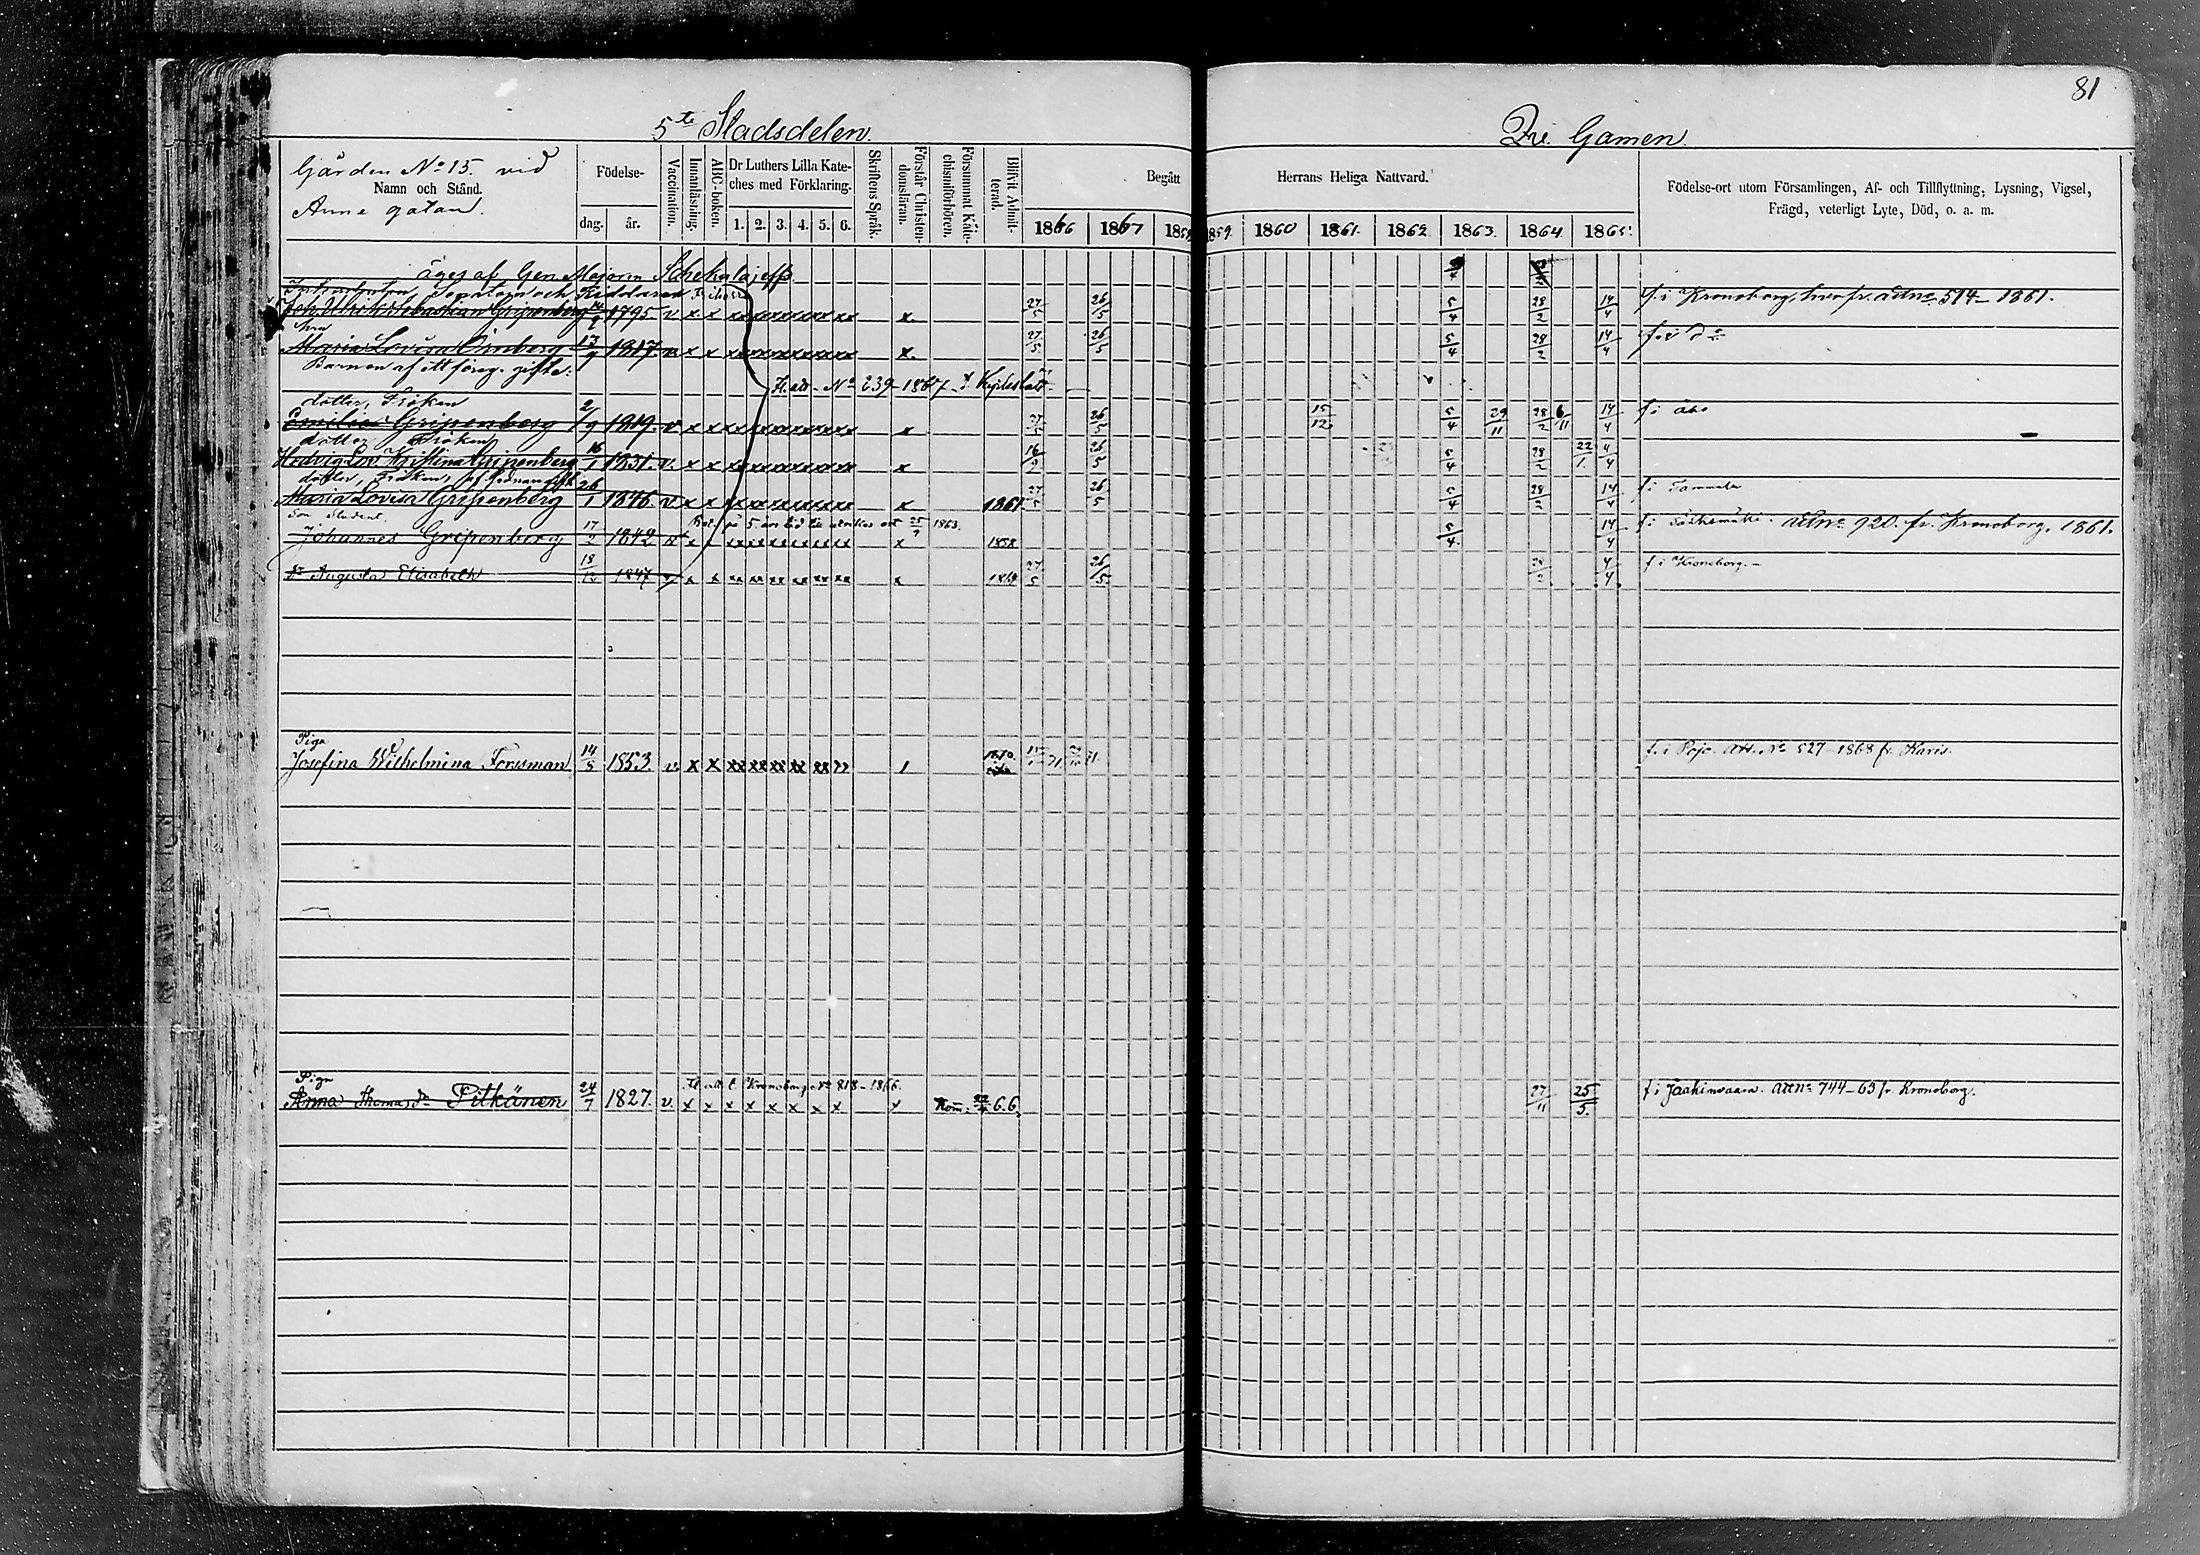 81
5te Stadsdelen.
Qu. Gamen.
Gården No 15. vid
Namn och Stånd.
Anne gatan.
Födelse-
dag. år.
Vaccination.
Innanläsning.
ABC-boken.
Dr Luthers Lilla Kate-
ches med Förklaring.
1. 2. 3. 4. 5. 6.
Skriftens Språk.
Förstår Christen-
domsläran.
Försummat Kate-
chismiförhören.
Blifvit Admit-
terad.
Begått
Herrans Heliga Nattvard.
1866 1867 1858 1859. 1860 1861. 1862. 1863. 1864. 1865.
Födelse-ort utom Församlingen, Af- och Tillflyttning, Lysning, Vigsel,
Frägd, veterligt Lyte, Död, o. a. m.
äges af Gen Majorin
Senatorn och Riddaren Friherre
Joh. Ulrik Sebastian Gripenberg 1795 v x x x 27/5 26/5 5/4 28/2 14/4 f. i Kronoborg, fr. attno 514 - 1861.
Maria Lovisa 17/9 1817. v x x x. 27/5 26/5 5/4 28/2 14/4 f. i do
Barnen af ett föreg. gifte.
Fl. att. No 239 - 1867
dotter, Fröken
Emilia Gripenberg 2/9 1819. v x x x 27/5 26/5 15/12 5/4 29/11 28/2 6/11 14/4 f i Åbo
dotter Fröken
Hedvig Lov. Kristina Gripenberg 16/1 1831. v. x x x 16/2 26/5 5/4 28/2 22/1. 4/4
dotter, Fröken,
Maria Lovisa Gripenberg 26/1 1846. v x x x 1861. 27/5 26/5 5/4 28/2 14/4 f i Tammela
Son Student. på 5 års tid till utrikes ort 25/9 1863.
Johannes Gripenberg 17/2 1842 v x x x 1858 5/4. 14/4 f i attno 920. fr. Kronoborg. 1861.
Dr Augusta Elisabeth 18/12 1847 v x x x 1864 27/5 26/5. 28/2 4/4. f i Kronoborg.
Piga
Josefina Wilhelmina Forssman 14/8 1853. v. x x 1 1870. f. i Pojo. Att. No 527 - 1868 fr. Karis.
Piga Fl. att t. Kronoborg. No 818 - 1866.
Anna Thomas Dr Pitkänen 24/7 1827. v. x x x x x x x x x Kom. 22/4 66. 27/11 25/5. f i Jaakimvaara. Attno 744 - 63 fr. Kronoborg.